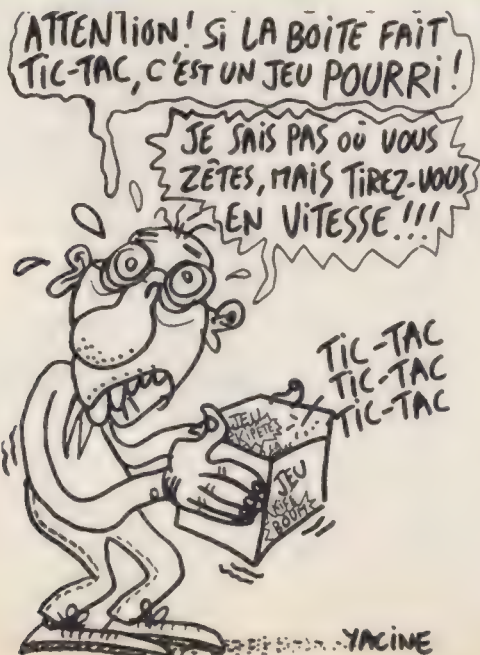 ATTENTION! SI LA BOITE FAIT
TIC-TAC, C'EST UN JEU POURRI!
JE SAIS PAS OÙ VOUS
ZÊTES, MAIS TIREZ-VOUS
EN VITESSE!!!
TIC-TAC
TIC-TAC
TIC-TAC
JEU
KIPETE
JEU
KIFÉ
BOUM
YACINE